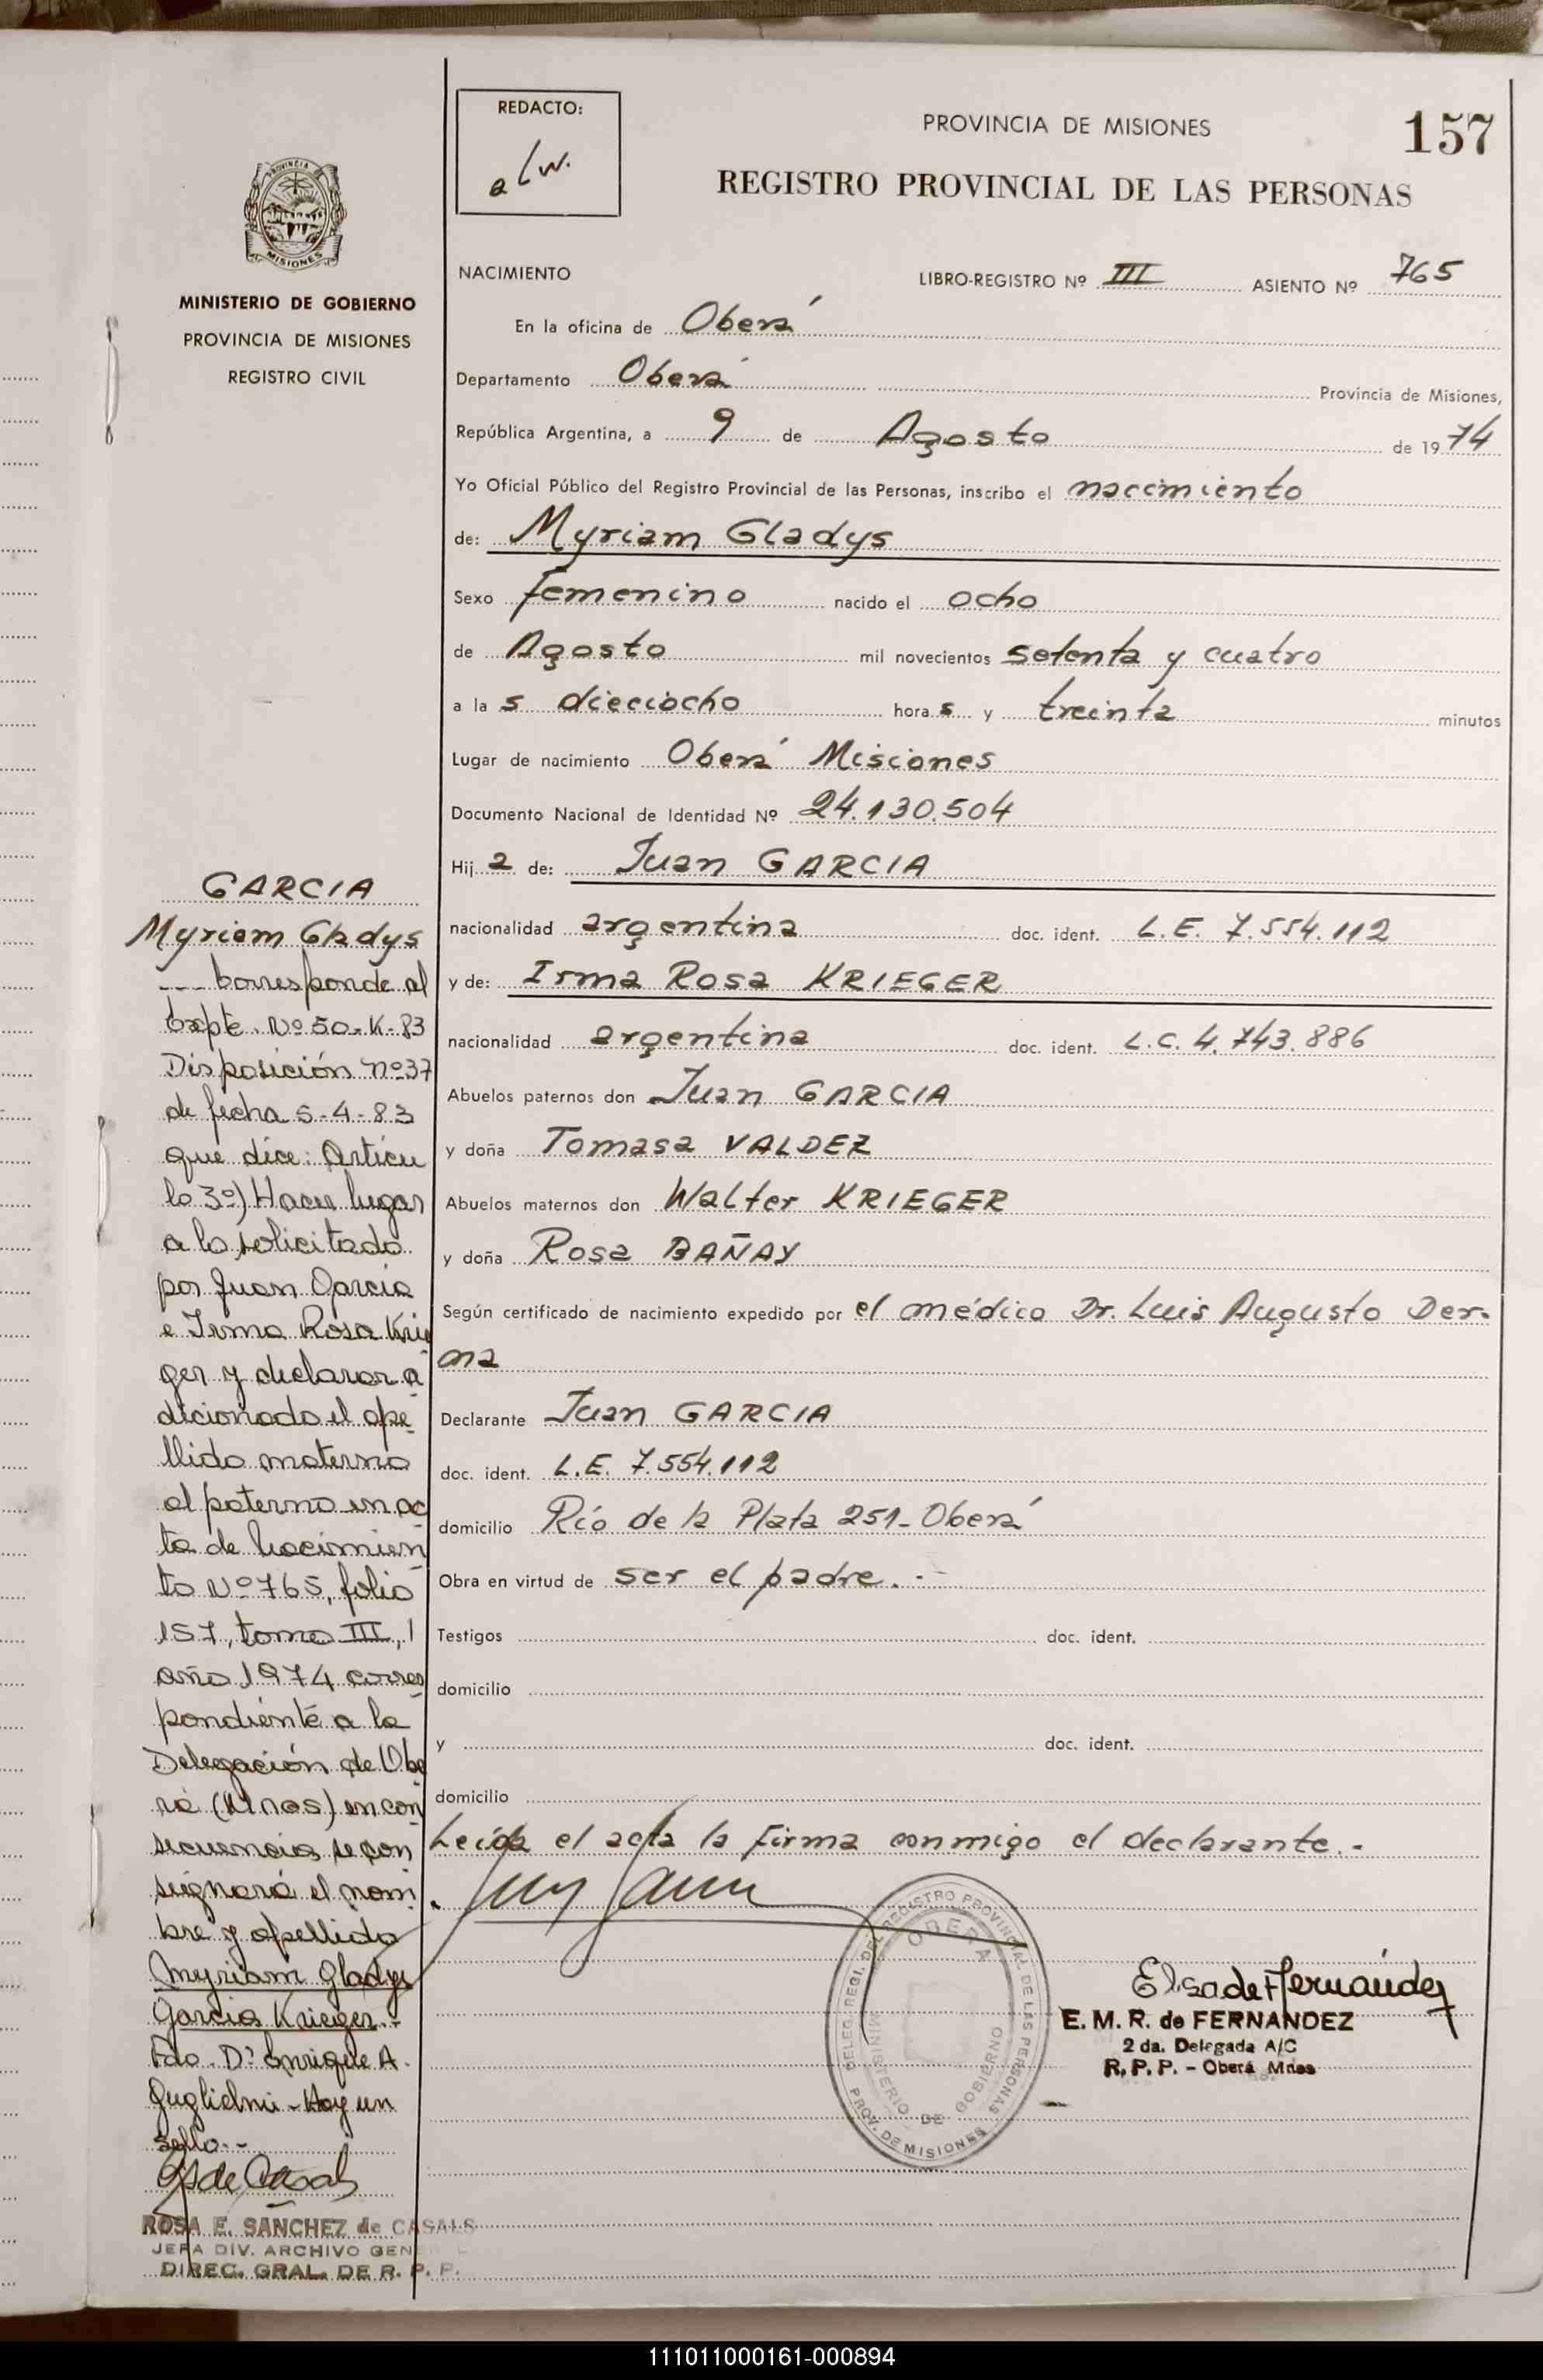 REDACTO:
PROVINCIA DE MISIONES
157
REGISTRO PROVINCIAL DE LAS PERSONAS
PROVINCIA
MISIONES
MINISTERIO DE GOBIERNO
PROVINCIA DE MISIONES
REGISTRO CIVIL
NACIMIENTO LIBRO-REGISTRO Nº III ASIENTO Nº 765
En la oficina de Oberá
Departamento Oberá Provincia de Misiones,
República Argentina, a 9 de Agosto de 1974
Yo Oficial Público del Registro Provincial de las Personas, inscribo el nacimiento
de: Myriam Gladys
Sexo femenino nacido el ocho
de Agosto mil novecientos setenta y cuatro
a la s dieciocho hora s y treinta minutos
Lugar de nacimiento Oberá Misiones
Documento Nacional de Identidad Nº 24.130.504
Hij a de: Juan GARCIA
nacionalidad argentina doc. ident. L.E. 7.554.112
y de: Irma Rosa KRIEGER
nacionalidad argentina doc. ident. L.C. 4.743.886
Abuelos paternos don Juan GARCIA
y doña Tomasa VALDEZ
Abuelos maternos don Walter KRIEGER
y doña Rosa BAÑAY
Según certificado de nacimiento expedido por el médico Dr. Luis Augusto Der-
ma
Declarante Juan GARCIA
doc. ident. L.E. 7.554.112
domicilio Río de la Plata 251-Oberá
Obra en virtud de ser el padre.-
Testigos doc. ident.
domicilio
y doc. ident.
domicilio
Leída el acta la firma conmigo el declarante.-
Elsa de Fernández
E. M. R. de FERNANDEZ
2 da. Delegada A/C
R. P. P. - Oberá Mnes
DELEG. REGI. DEL REGISTRO PROVINCIAL DE LAS PERSONAS
OBERA
MINISTERIO DE GOBIERNO
PROV. DE MISIONES
GARCIA
Myriam Gladys
--- Corresponde al
Expte. Nº 50-K-83
Disposición nº 37
de fecha 5-4-83
que dice: Artícu
lo 3º) Hacer lugar
a lo solicitado
por Juan Garcia
e Irma Rosa Krie
ger y declarar a
dicionado el ape
llido materno
al paterno en ac
ta de Nacimien
to Nº 765, folio
157, tomo III,
año 1974 corres
pondiente a la
Delegación de Obe
rá (Mnes) en con
secuencia se con
signará el nom
bre y apellido
Myriam Gladys
Garcia Krieger.-
Fdo. Dº Enrique A.
Guglielmi - Hay un
sello.-
ROSA E. SANCHEZ de CASALS
JEFA DIV. ARCHIVO GENERAL
DIREC. GRAL. DE R. P. P.
111011000161-000894